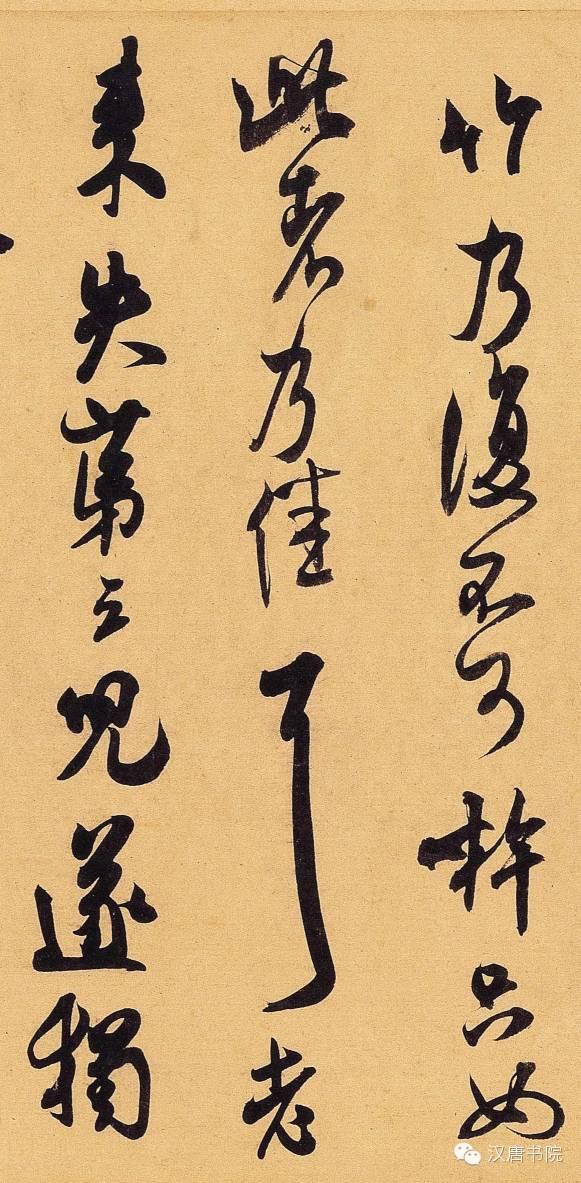 竹乃復不可只如
此者乃佳耳老
來失第三兒遂獨
汉唐书院